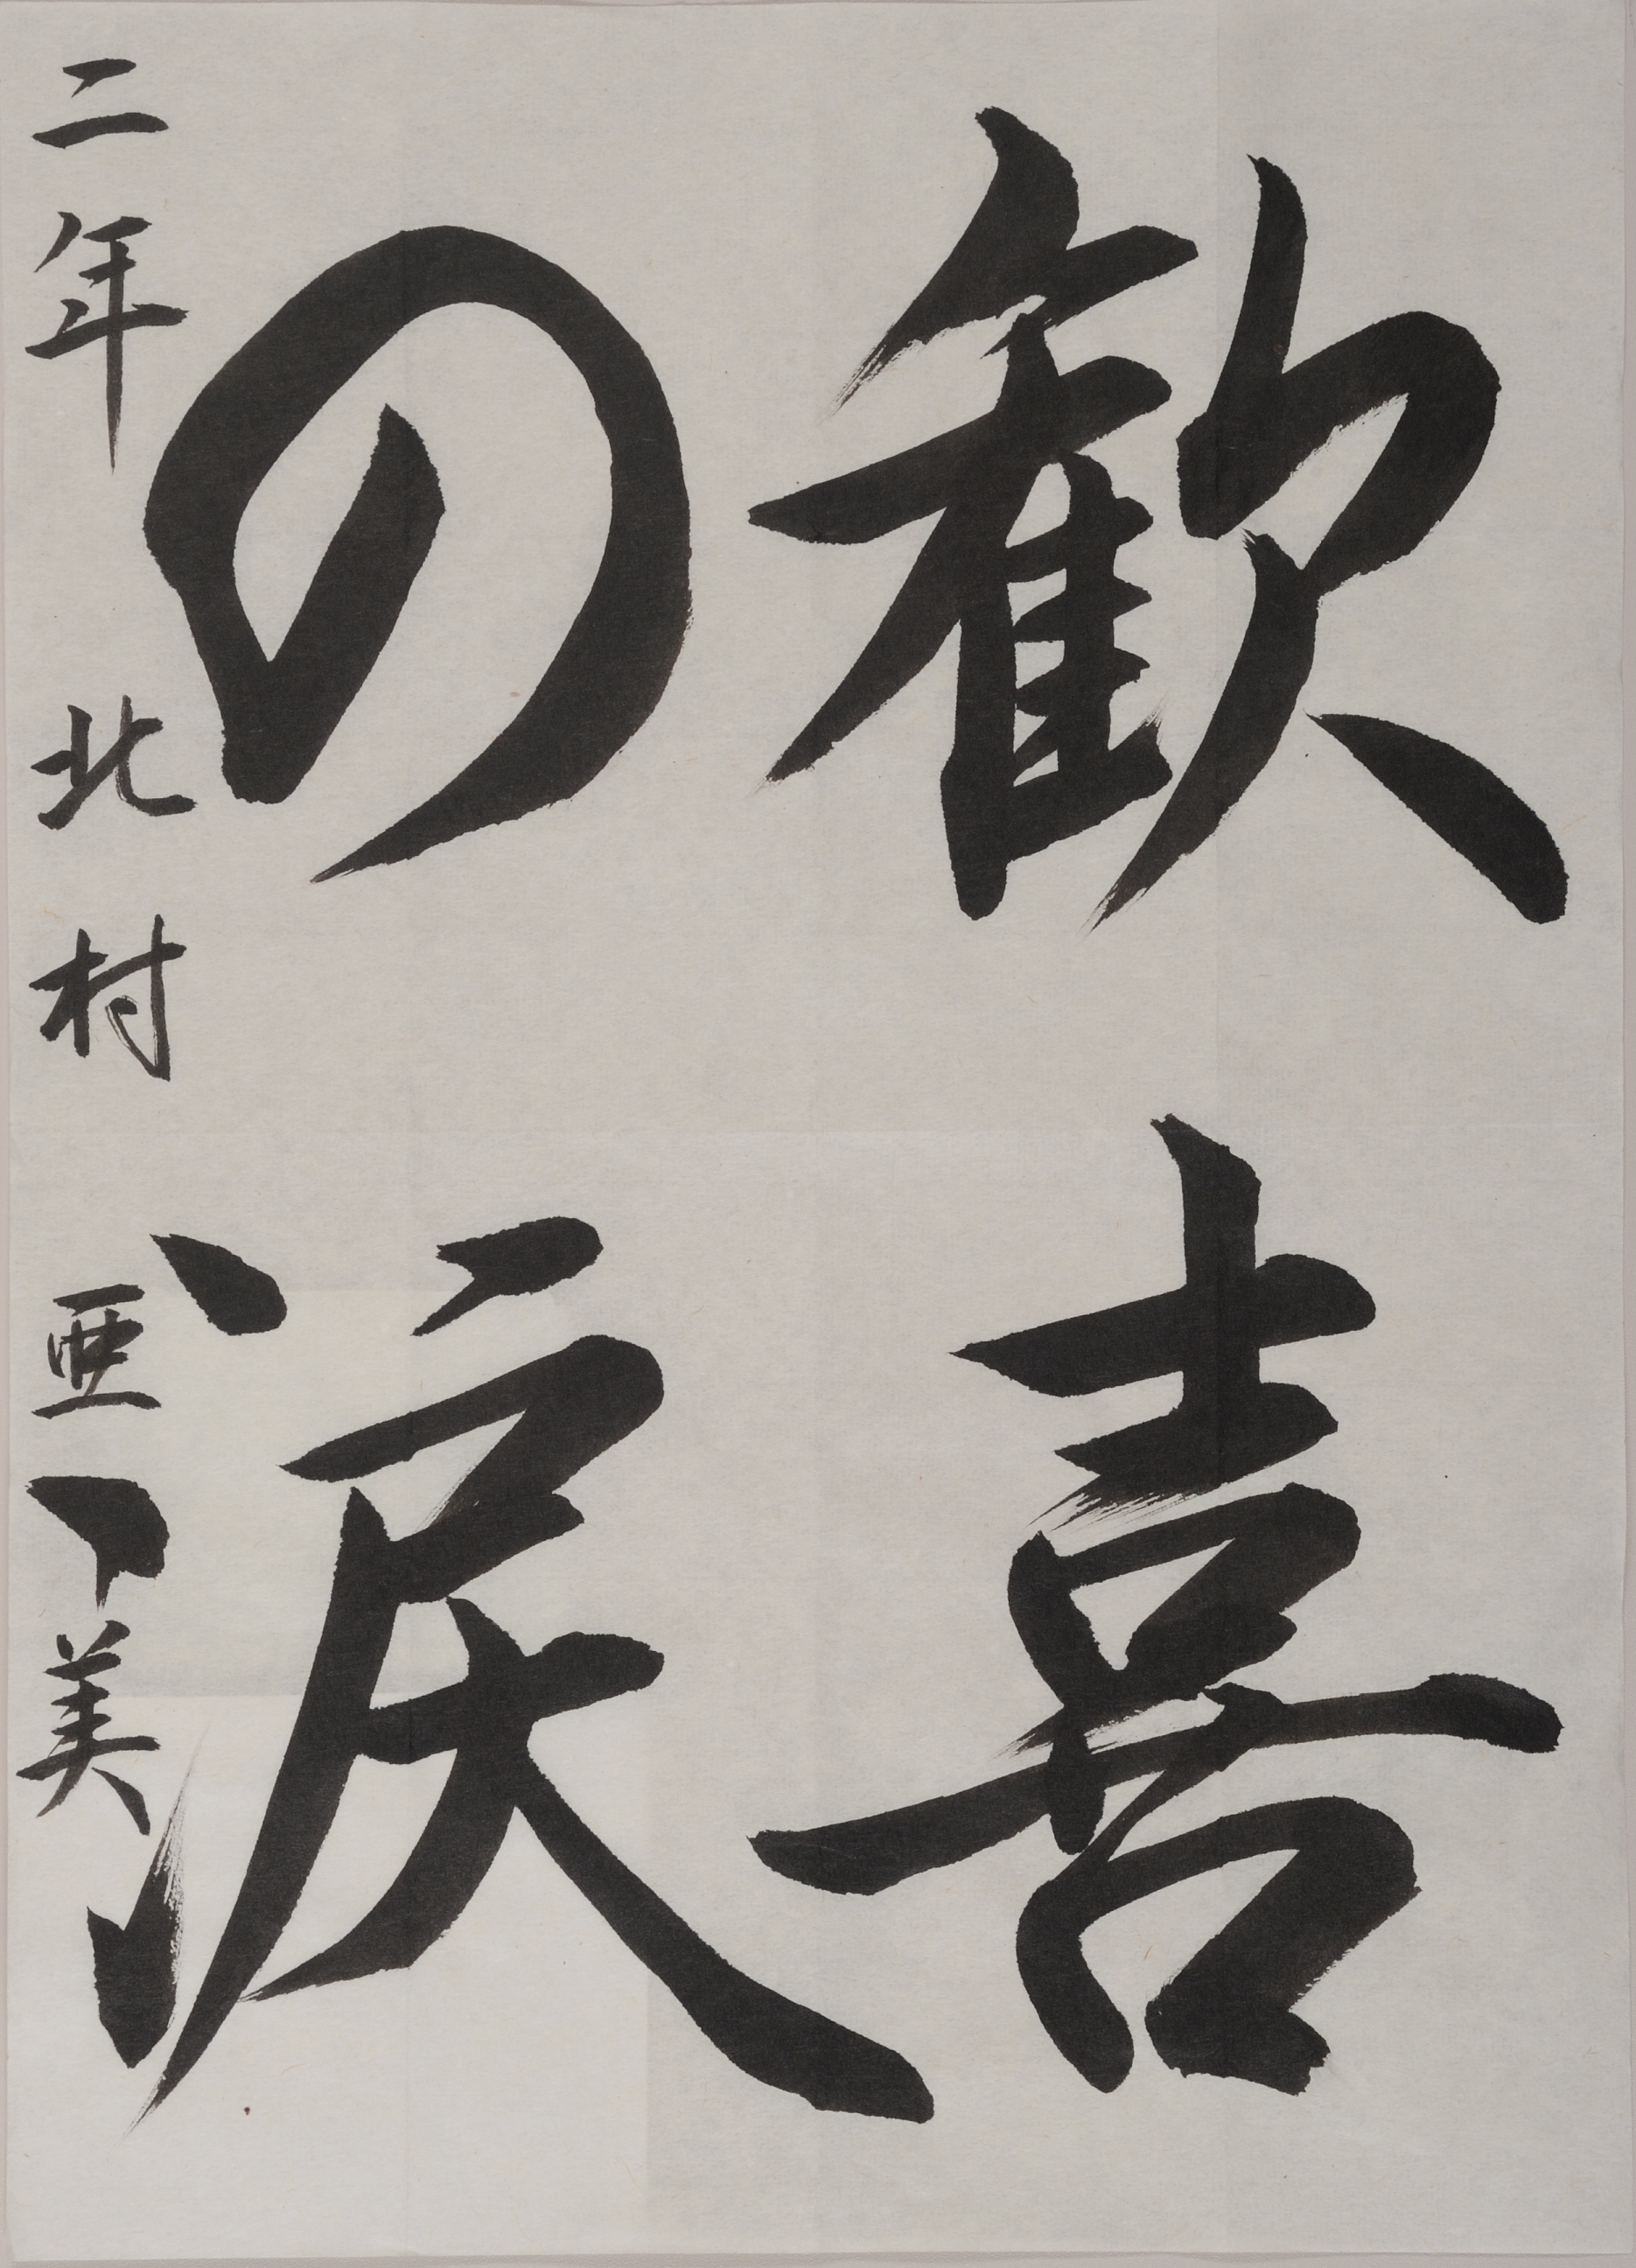 歓喜
の涙
二年 北村 亜美